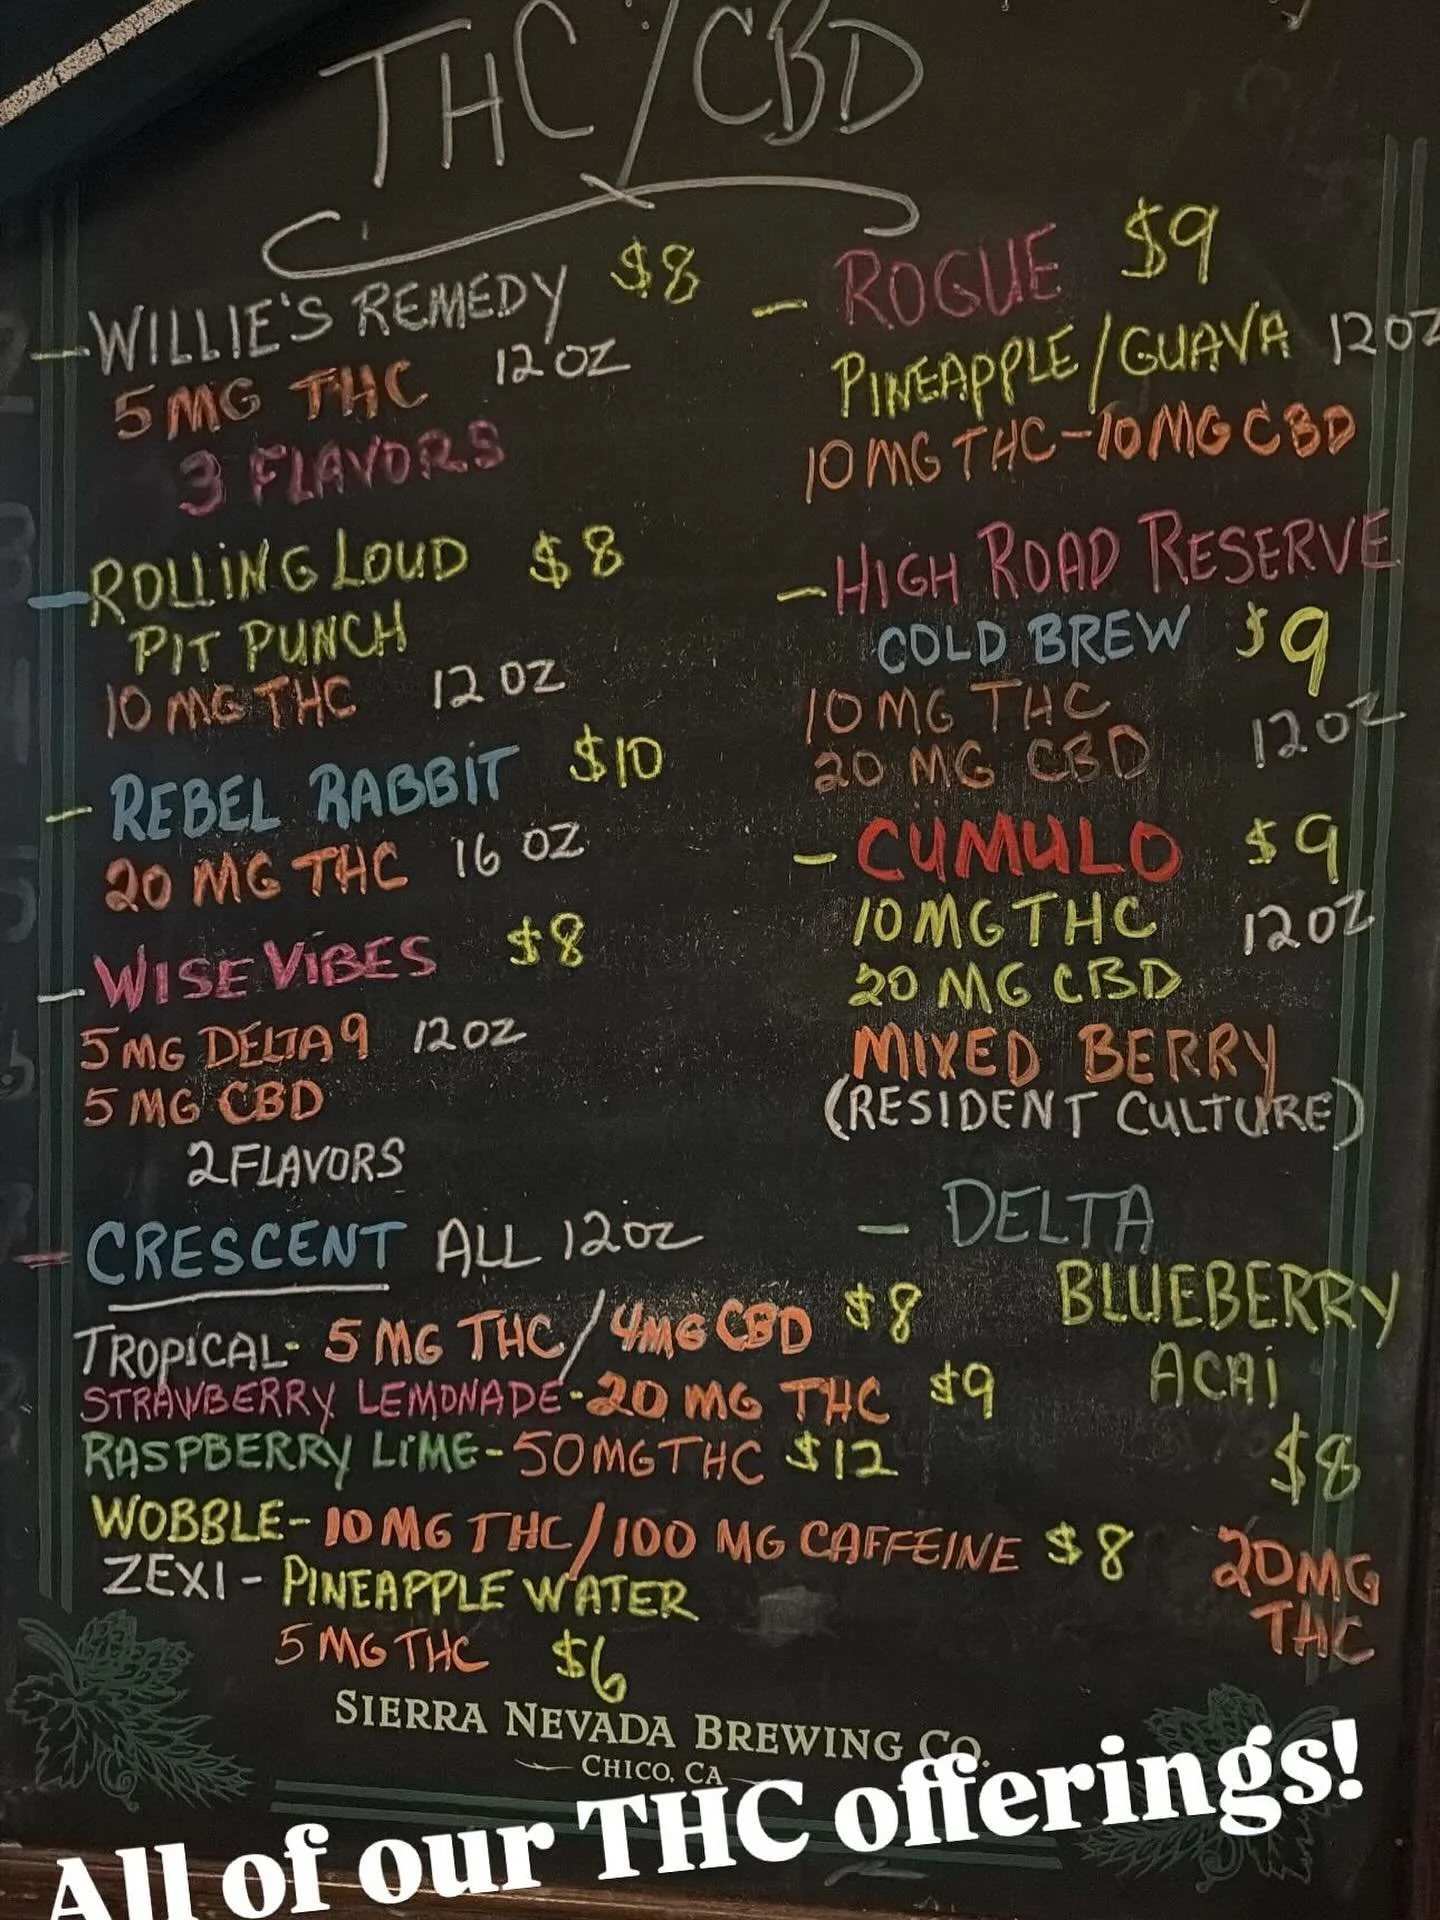 THC/CBD
WILLIE'S REMEDY $8
5 MG THC 12 OZ
3 FLAVORS
ROLLING LOUD $8
PIT PUNCH
10 MG THC 12 OZ
REBEL RABBIT $10
20 MG THC 16 OZ
WISE VIBES $8
5 MG DELTA 9 12 OZ
5 MG CBD
2 FLAVORS
CRESCENT ALL 12 OZ
TROPICAL- 5 MG THC/4MG CBD $8
STRAWBERRY LEMONADE-20 MG THC $9
RASPBERRY LIME-50MG THC $12
WOBBLE-10 MG THC/100 MG CAFFEINE $8
ZEXI- PINEAPPLE WATER
5 MG THC $6
- ROGUE $9
PINEAPPLE/GUAVA 12 OZ
10 MG THC-10 MG CBD
-HIGH ROAD RESERVE
COLD BREW $9
10 MG THC
20 MG CBD 12 OZ
- CUMULO $9
10 MG THC 12 OZ
20 MG CBD
MIXED BERRY
(RESIDENT CULTURE)
- DELTA
BLUEBERRY
ACAI
$8
20MG
THC
SIERRA NEVADA BREWING CO.
CHICO, CA
All of our THC offerings!